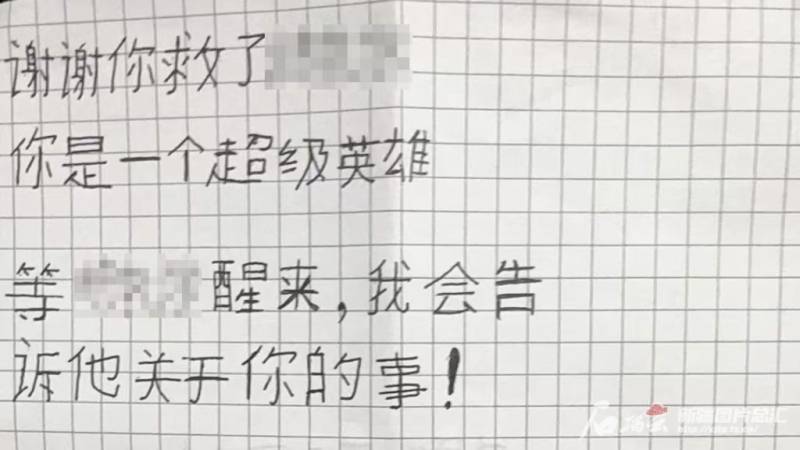 谢谢你救了
你是一个超级英雄
等醒来,我会告
诉他关于你的事!